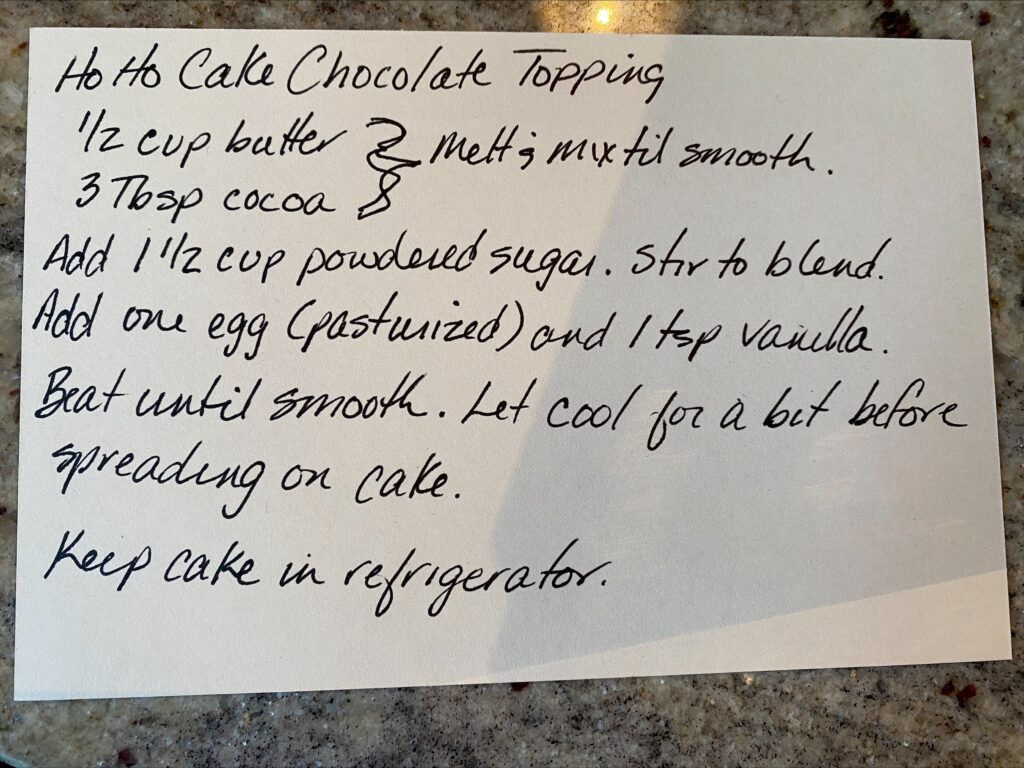 Ho Ho Cake Chocolate Topping
1/2 cup butter } Melt & mix til smooth.
3 Tbsp cocoa }
Add 1 1/2 cup powdered sugar. Stir to blend.
Add one egg (pasturized) and 1 tsp vanilla.
Beat until smooth. Let cool for a bit before
spreading on cake.
Keep cake in refrigerator.